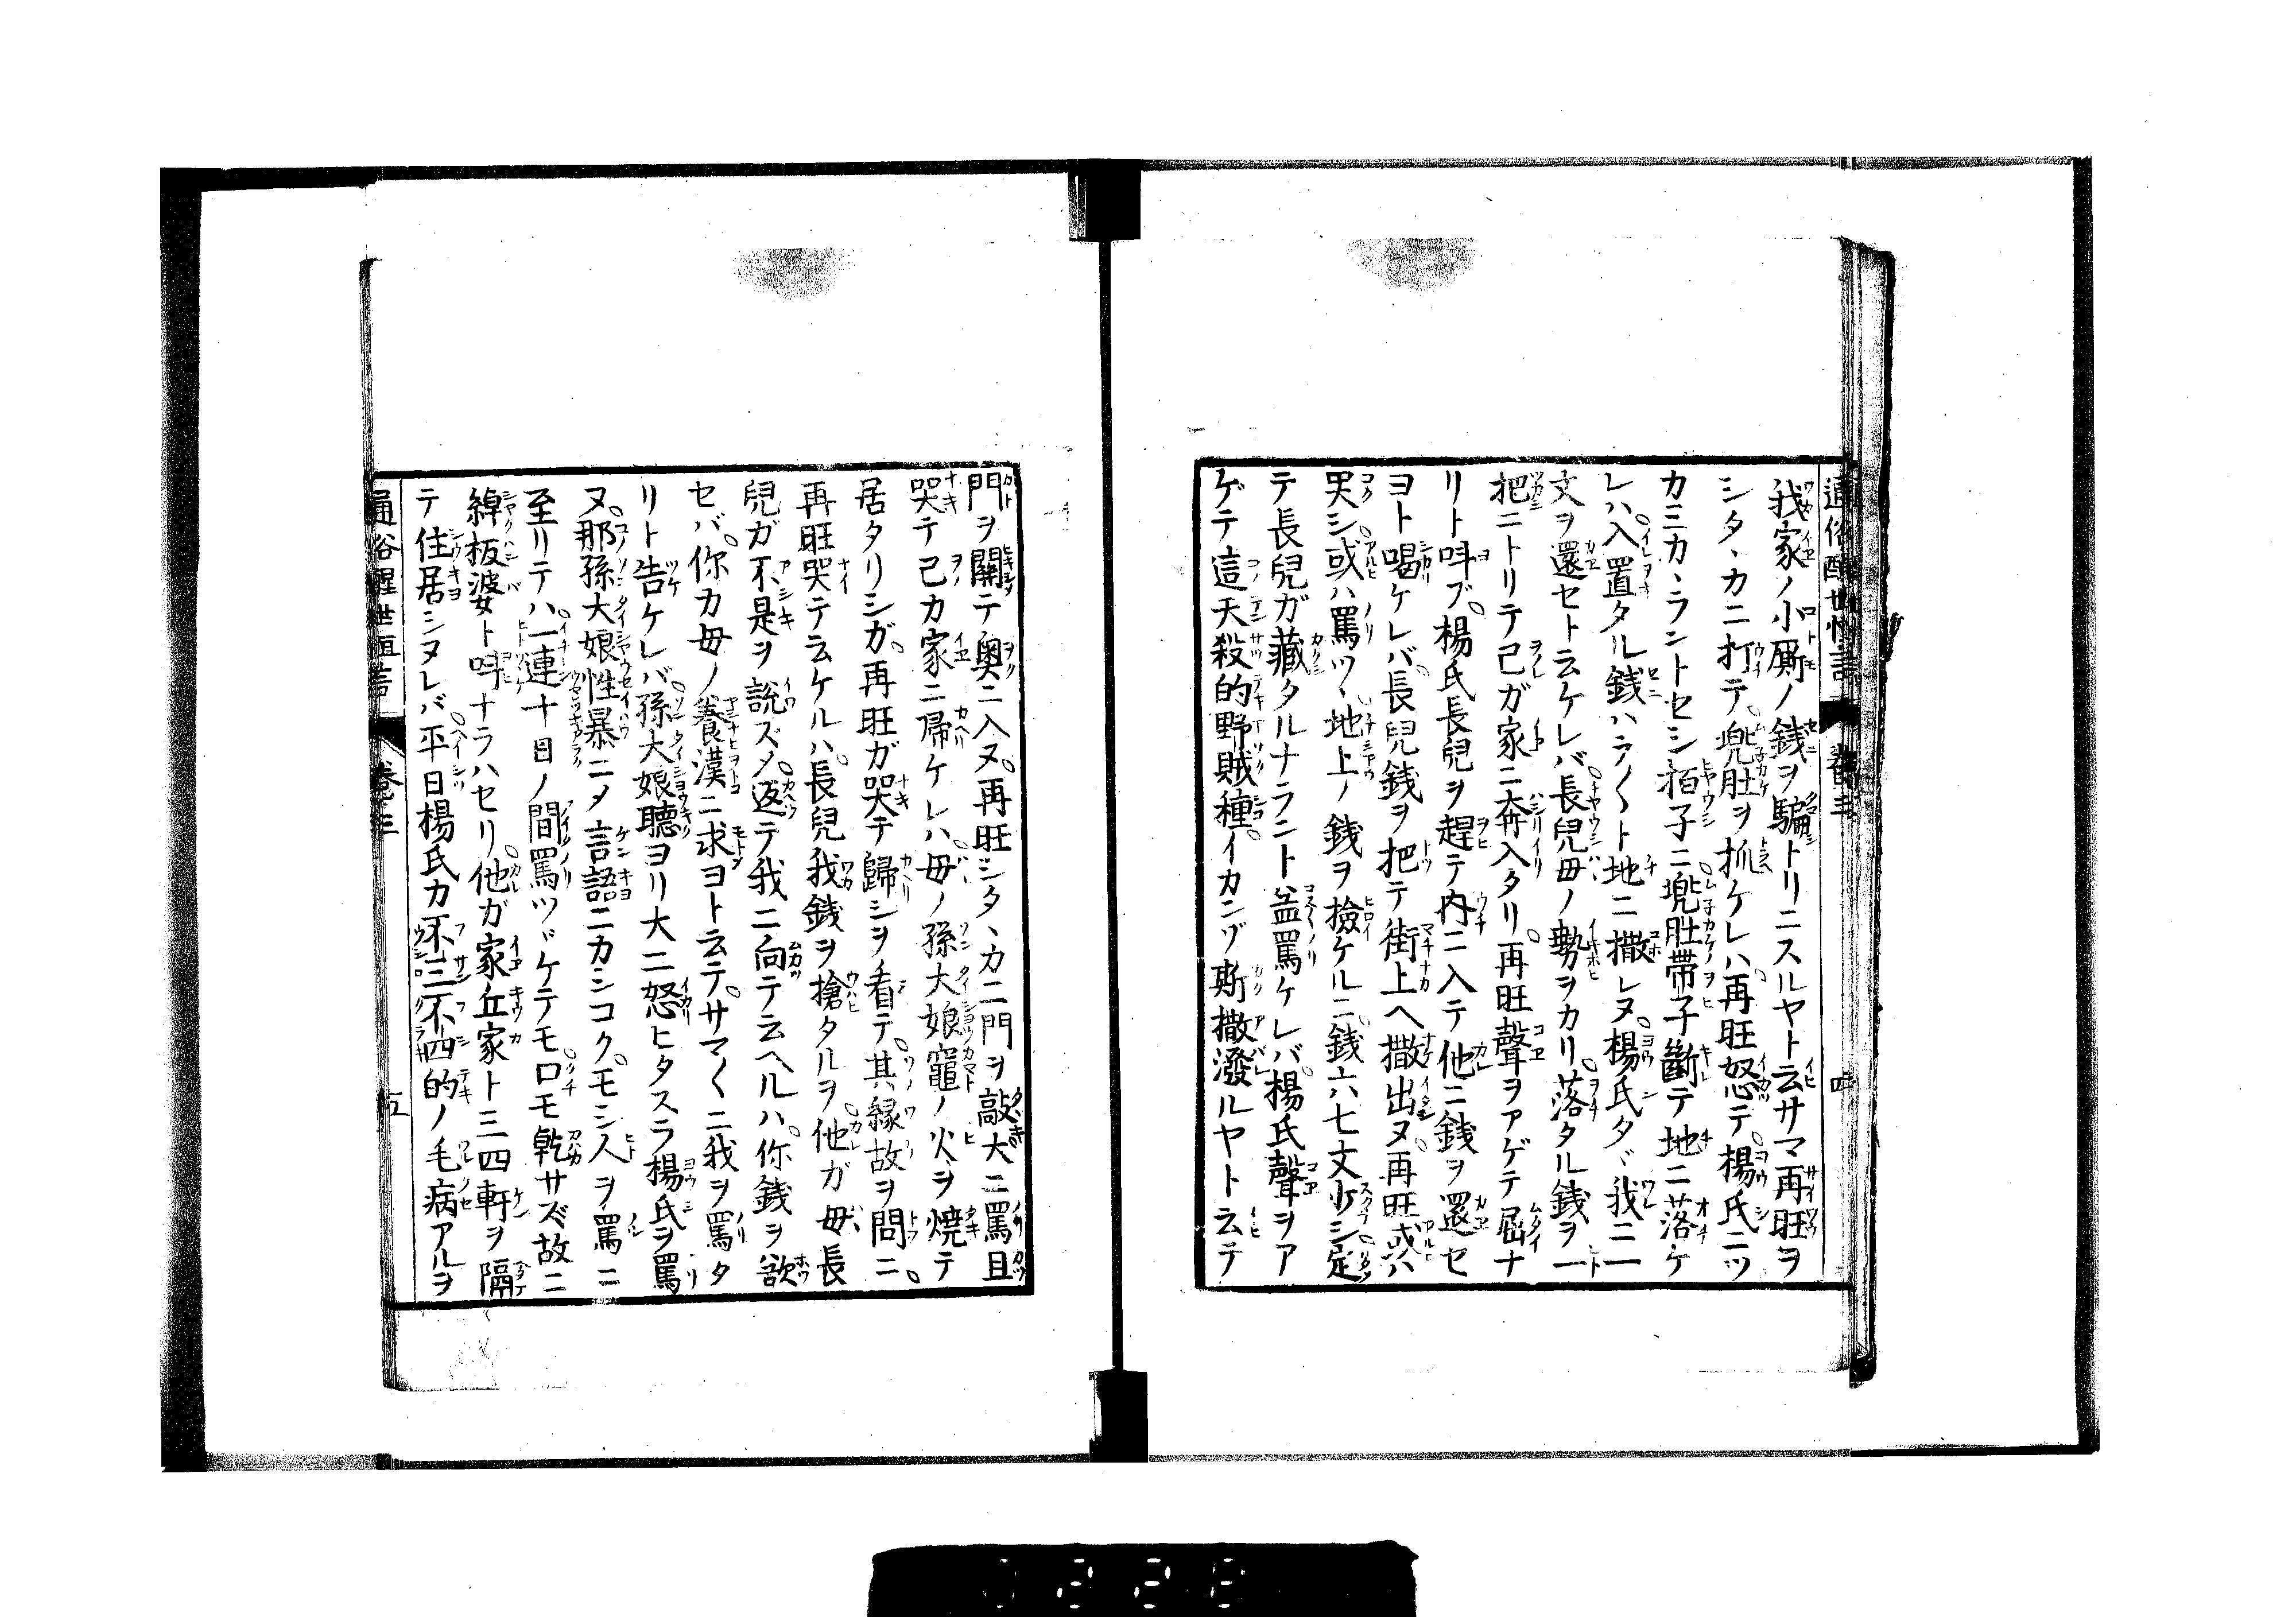 我家ノ小厮ノ銭ヲ騙トリニスルヤト云サマ再旺ヲ
シタヽカニ打テ兜肚ヲ抓ケレハ再旺怒テ楊氏ニツ
カミカヽラントセシ拍子ニ兜肚帯子斷テ地ニ落ケ
レハ入置タル銭ハラ〱ト地ニ撒レヌ楊氏タヾ我ニ一
文ヲ還セト云ケレバ長兒母ノ勢ヲカリ落タル銭ヲ一
把ニトリテ己ガ家ニ奔入タリ再旺聲ヲアゲテ屈ナ
リト呌ブ楊氏長兒ヲ趕テ内ニ入テ他ニ銭ヲ還セ
ヨト喝ケレバ長兒銭ヲ把テ街上ヘ撒出ヌ再旺或ハ
哭シ或ハ罵ツヽ地上ノ銭ヲ撿ケルニ銭六七文少シ定
テ長兒ガ藏タルナラント益罵ケレバ楊氏聲ヲア
ゲテ這天殺的野賊種イカンゾ斯撒潑ルヤト云テ
通俗醒世恒言 卷三 四
門ヲ關テ奥ニ入ヌ再旺シタヽカニ門ヲ敲大ニ罵且
哭テ己カ家ニ帰ケレハ母ノ孫大娘竈ノ火ヲ焼テ
居タリシガ再旺ガ哭テ歸シヲ看テ其縁故ヲ問ニ
再旺哭テ云ケルハ長兒我銭ヲ搶タルヲ他ガ母長
兒ガ不是ヲ説ズメ返テ我ニ向テ云ヘルハ你銭ヲ欲
セバ你カ母ノ養漢ニ求ヨト云テサマ〱ニ我ヲ罵タ
リト告ケレバ孫大娘聽ヨリ大ニ怒ヒタスラ楊氏ヲ罵
ヌ那孫大娘性暴ニメ言語ニカシコクモシ人ヲ罵ニ
至リテハ一連十日ノ間罵ツヾケテモ口モ乾サズ故ニ
綽板婆ト呌ナラハセリ他ガ家丘家ト三四軒ヲ隔
テ住居シヌレバ平日楊氏カ不三不四的ノ毛病アルヲ
通俗醒世恒言 卷三 五